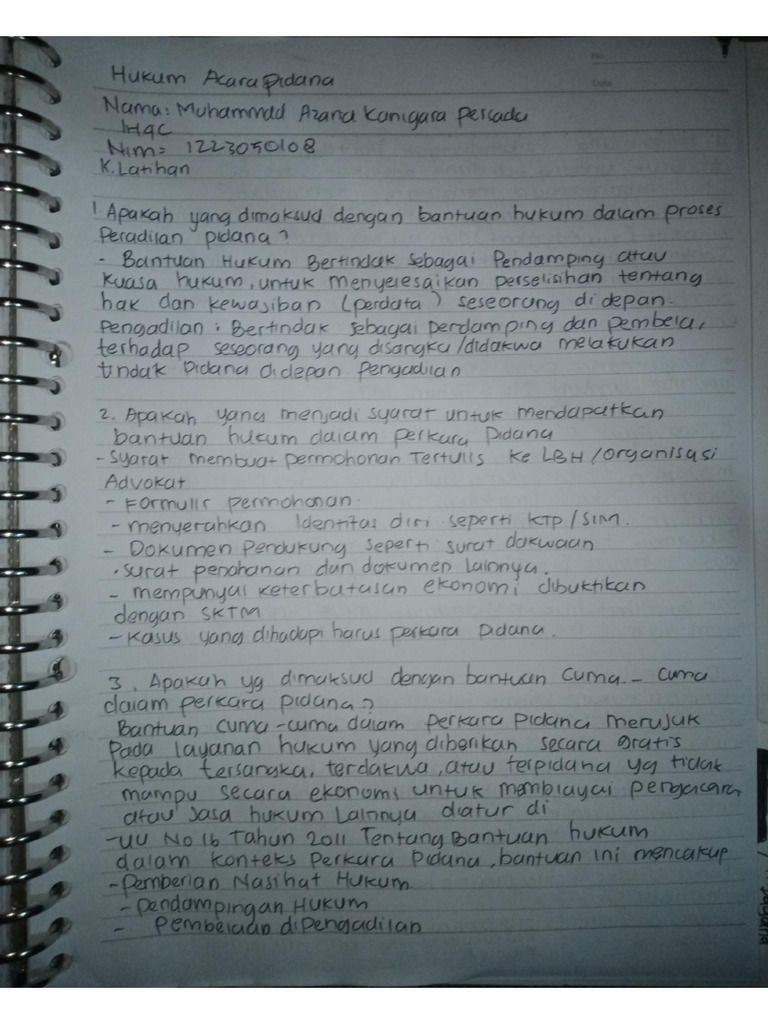 Hukum Acara Pidana
Nama: Muhammad Azana Kanigara Persada
IHQC
Nim= 1223050108
K. Latihan
1. Apakah yang dimaksud dengan bantuan hukum dalam proses
Peradilan pidana?
- Bantuan Hukum Bertindak sebagai Pendamping atau
Kuasa hukum, untuk menyelesaikan perselisihan tentang
hak dan kewajiban (perdata) seseorang didepan.
Pengadilan; Bertindak sebagai pendamping dan pembela,
terhadap seseorang yang disangka/didakwa melakukan
tindak Pidana didepan Pengadilan
2. Apakah yang menjadi syarat untuk mendapatkan
bantuan hukum dalam perkara Pidana
- Syarat membuat permohonan Tertulis ke LBH/organisasi
Advokat
- Formulir permohonan
- menyerahkan Identitas diri seperti KTP/SIM.
- Dokumen Pendukung seperti surat dakwaan
. surat penahanan dan dokumen lainnya.
- mempunyai keterbatasan ekonomi dibuktikan
dengan SKTM
- Kasus yang dihadapi harus perkara Pidana.
3. Apakah yg dimaksud dengan bantuan Cuma - cuma
dalam perkara pidana?
Bantuan cuma-cuma dalam perkara Pidana merujuk
Pada layanan hukum yang diberikan secara gratis
kepada tersangka, terdakwa, atau terpidana yg tidak
mampu secara ekonomi untuk membiayai pengacara
atau Jasa hukum Lainnya diatur di
- UU No 16 Tahun 2011 Tentang Bantuan hukum
dalam konteks Perkara Pidana, bantuan ini mencakup
- Pemberian Nasihat Hukum
- Pendampingan Hukum
- Pembelaan diPengadilan